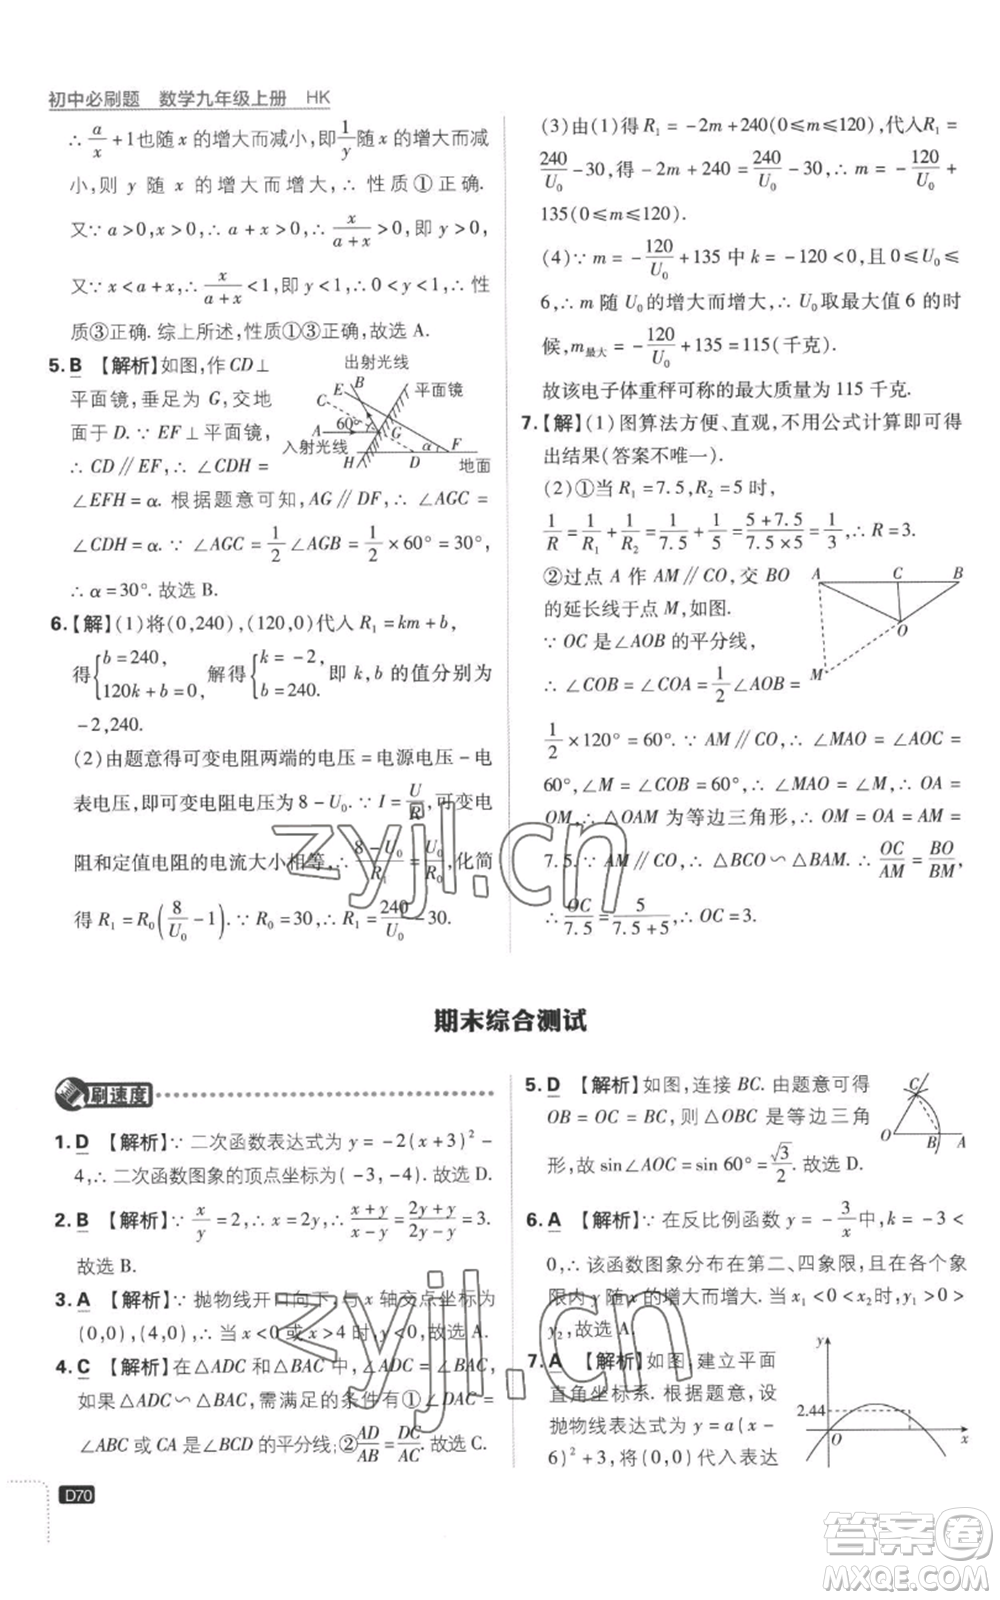 初中必刷题 数学九年级上册 HK
∴ a/x + 1也随 x 的增大而减小,即 1/y 随 x 的增大而减
小,则 y 随 x 的增大而增大,∴ 性质①正确.
又∵ a>0,x>0,∴ a+x>0,∴ x/(a+x) >0,即 y>0,
又∵ x<a+x,∴ x/(a+x) <1,即 y<1,∴ 0<y<1,∴ 性
质③正确. 综上所述,性质①③正确,故选 A.
5. B 【解析】如图,作 CD⊥
平面镜,垂足为 G,交地
面于 D. ∵ EF⊥平面镜,
∴ CD∥EF,∴ ∠CDH=
∠EFH=α. 根据题意可知,AG∥DF,∴ ∠AGC=
∠CDH=α. ∵ ∠AGC = 1/2 ∠AGB = 1/2 ×60°=30°,
∴ α=30°. 故选 B.
出射光线
B
E
C
平面镜
60°
A
G
入射光线
α
F
H
D
地面
6.【解】(1)将(0,240),(120,0)代入 R₁=km+b,
得{b=240, 120k+b=0, 解得{k=-2, b=240. 即 k,b 的值分别为
-2,240.
(2)由题意得可变电阻两端的电压=电源电压-电
表电压,即可变电阻电压为 8-U₀. ∵ I= U/R,可变电
阻和定值电阻的电流大小相等,∴ (8-U₀)/R₁ = U₀/R₀,化简
得 R₁=R₀(8/U₀ -1). ∵ R₀=30,∴ R₁= 240/U₀ -30.
(3)由(1)得 R₁=-2m+240(0≤m≤120),代入R₁=
240/U₀ -30,得-2m+240= 240/U₀ -30,∴ m=- 120/U₀ +
135(0≤m≤120).
(4)∵ m=- 120/U₀ +135 中 k=-120<0,且 0≤U₀≤
6,∴ m 随 U₀ 的增大而增大,∴ U₀ 取最大值 6 的时
候,m最大=- 120/U₀ +135=115(千克).
故该电子体重秤可称的最大质量为 115 千克.
7.【解】(1)图算法方便、直观,不用公式计算即可得
出结果(答案不唯一).
(2)①当 R₁=7.5,R₂=5 时,
1/R = 1/R₁ + 1/R₂ = 1/7.5 + 1/5 = (5+7.5)/(7.5×5) = 1/3,∴ R=3.
②过点 A 作 AM∥CO,交 BO
的延长线于点 M,如图.
∵ OC 是∠AOB 的平分线,
∴ ∠COB=∠COA= 1/2 ∠AOB=
A
C
B
O
M
1/2 ×120°=60°. ∵ AM∥CO,∴ ∠MAO=∠AOC=
60°,∠M=∠COB=60°,∴ ∠MAO=∠M,∴ OA=
OM,∴ △OAM 为等边三角形,∴ OM=OA=AM=
7.5. ∵ AM∥CO,∴ △BCO∽△BAM. ∴ OC/AM = BO/BM,
∴ OC/7.5 = 5/(7.5+5),∴ OC=3.
期末综合测试
刷速度
1. D 【解析】∵ 二次函数表达式为 y=-2(x+3)²-
4,∴ 二次函数图象的顶点坐标为(-3,-4). 故选 D.
2. B 【解析】∵ x/y =2,∴ x=2y,∴ (x+y)/(x-y) = (2y+y)/(2y-y) =3.
故选 B.
3. A 【解析】∵ 抛物线开口向下,与 x 轴交点坐标为
(0,0),(4,0),∴ 当 x<0 或 x>4 时,y<0,故选 A.
4. C 【解析】在△ADC 和△BAC 中,∠ADC=∠BAC,
如果△ADC∽△BAC,需满足的条件有①∠DAC=
∠ABC 或 CA 是∠BCD 的平分线;② AD/AB = DC/AC. 故选 C.
5. D 【解析】如图,连接 BC. 由题意可得
OB=OC=BC,则△OBC 是等边三角
形,故 sin∠AOC=sin 60°= √3/2. 故选 D.
C
O
B
A
6. A 【解析】∵ 在反比例函数 y=- 3/x 中,k=-3<
0,∴ 该函数图象分布在第二、四象限,且在每一象
限内 y 随 x 的增大而增大. 当 x₁<0<x₂时,y₁>0>
y₂,故选 A.
7. A 【解析】如图,建立平面
直角坐标系. 根据题意,设
抛物线表达式为 y=a(x-
6)²+3,将(0,0)代入表达
y
2.44
O
x
D70
zyjl.cn
zyjl.cn
答案圈
MXQE.COM